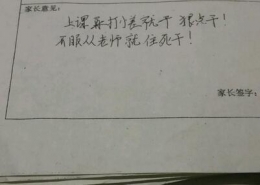 家长意见:
上课再打小差就干 狠点干!
不服从老师就 往死干!
家长签字: